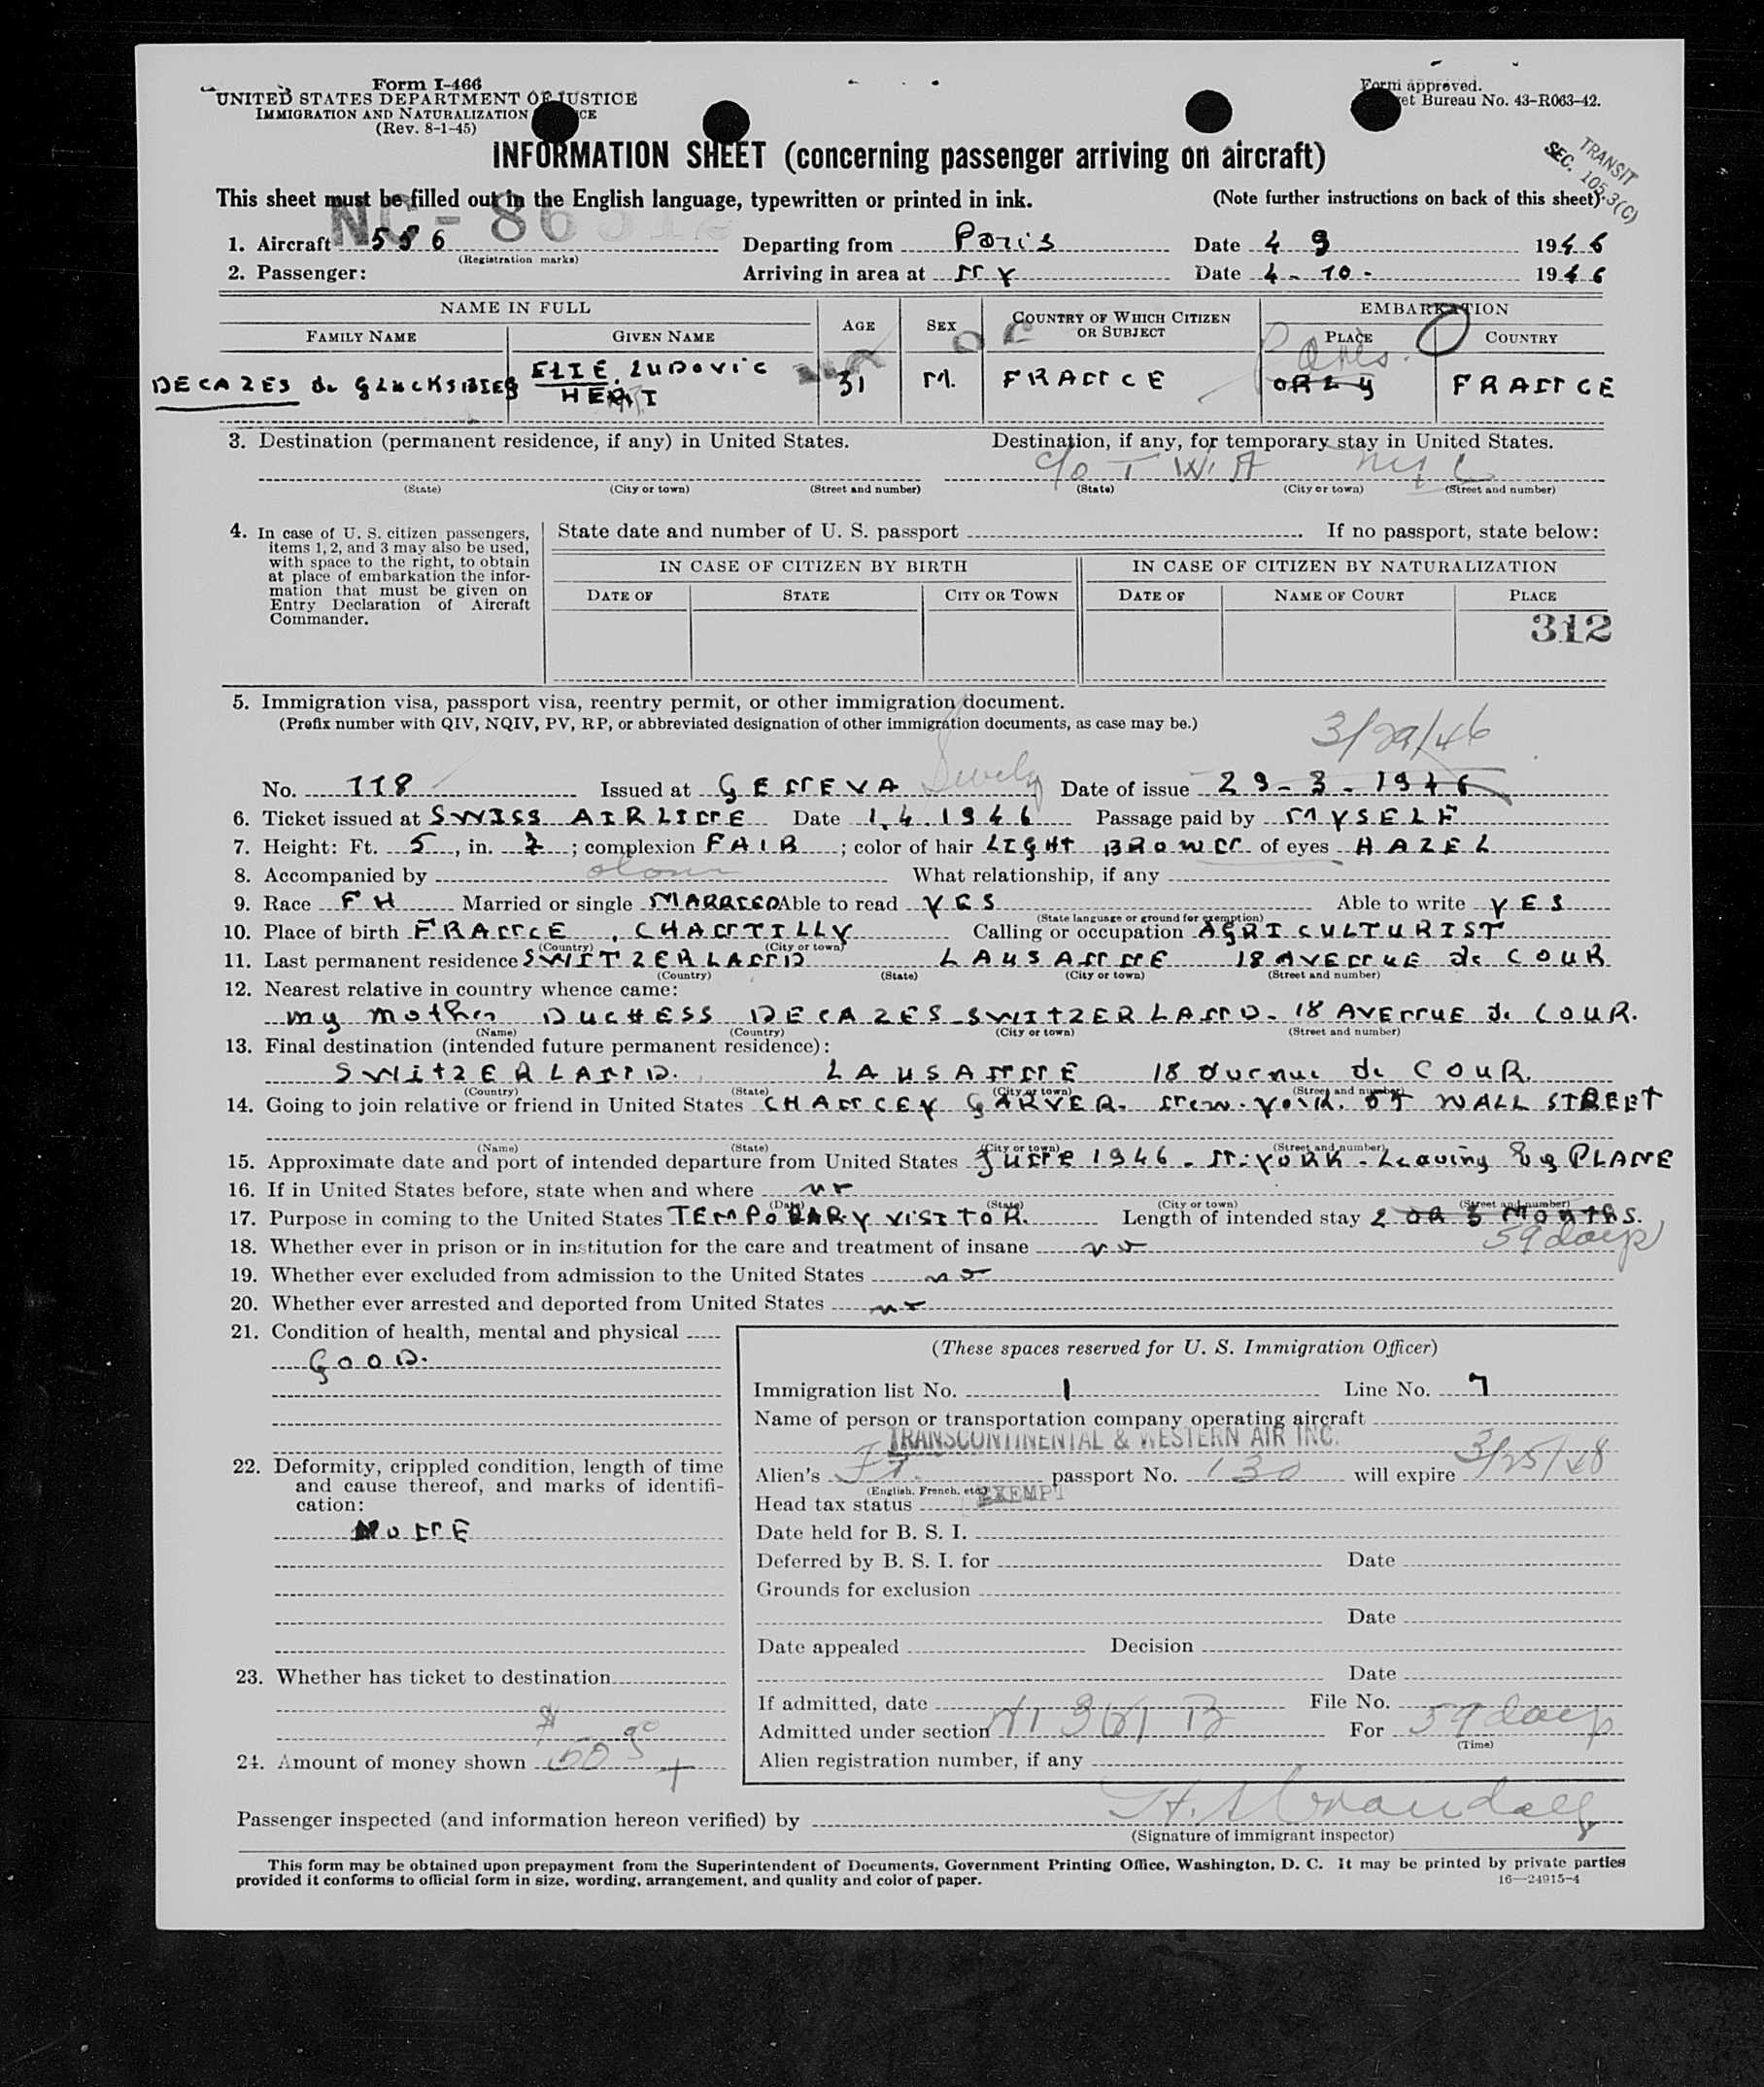 Form I-466
UNITED STATES DEPARTMENT OF JUSTICE
IMMIGRATION AND NATURALIZATION
(Rev. 8-1-45)
Form approved.
Bureau No. 43-R063-42.
INFORMATION SHEET (concerning passenger arriving on aircraft)
TRANSIT
SEC. 105.3(C)
This sheet must be filled out in the English language, typewritten or printed in ink. (Note further instructions on back of this sheet)
NC-86512
1. Aircraft 556 Departing from Paris Date 4 9 1946
(Registration marks)
2. Passenger: Arriving in area at NY Date 4-10- 1946
NAME IN FULL AGE SEX COUNTRY OF WHICH CITIZEN OR SUBJECT EMBARKATION
FAMILY NAME GIVEN NAME PLACE COUNTRY
DECAZES de GLUCKSBIERG ELIE. LUDOVIC HENRI 31 M. FRANCE ORLY Paris. FRANCE
3. Destination (permanent residence, if any) in United States. Destination, if any, for temporary stay in United States.
c/o TWA NYC
(State) (City or town) (Street and number) (State) (City or town) (Street and number)
4. In case of U. S. citizen passengers, items 1, 2, and 3 may also be used, with space to the right, to obtain at place of embarkation the information that must be given on Entry Declaration of Aircraft Commander.
State date and number of U. S. passport . If no passport, state below:
IN CASE OF CITIZEN BY BIRTH IN CASE OF CITIZEN BY NATURALIZATION
DATE OF STATE CITY OR TOWN DATE OF NAME OF COURT PLACE
312
5. Immigration visa, passport visa, reentry permit, or other immigration document.
(Prefix number with QIV, NQIV, PV, RP, or abbreviated designation of other immigration documents, as case may be.)
3/29/46
No. 118 Issued at GENEVA Date of issue 29-3-1946
6. Ticket issued at SWISS AIRLINE Date 1.4.1946 Passage paid by MYSELF
7. Height: Ft. 5, in. 7; complexion FAIR; color of hair LIGHT BROWN of eyes HAZEL
8. Accompanied by alone What relationship, if any
9. Race FH Married or single MARRIED Able to read YES Able to write YES
(State language or ground for exemption)
10. Place of birth FRANCE, CHANTILLY Calling or occupation AGRICULTURIST
(Country) (City or town)
11. Last permanent residence SWITZERLAND LAUSANNE 18 AVENUE de COUR
(Country) (State) (City or town) (Street and number)
12. Nearest relative in country whence came:
my mother DUCHESS DECAZES SWITZERLAND - 18 AVENUE de COUR.
(Name) (Country) (City or town) (Street and number)
13. Final destination (intended future permanent residence):
SWITZERLAND. LAUSANNE 18 avenue de COUR.
(Country) (State) (City or town) (Street and number)
14. Going to join relative or friend in United States CHANCEY GARVER. new-york. WALL STREET
(Name) (State) (City or town) (Street and number)
15. Approximate date and port of intended departure from United States JUNE 1946 - N-YORK - Leaving by PLANE
16. If in United States before, state when and where no
(Date) (State) (City or town) (Street and number)
17. Purpose in coming to the United States TEMPORARY VISITOR. Length of intended stay 2 OR 3 MONTHS.
59 days
18. Whether ever in prison or in institution for the care and treatment of insane no
19. Whether ever excluded from admission to the United States no
20. Whether ever arrested and deported from United States no
21. Condition of health, mental and physical
GOOD.
22. Deformity, crippled condition, length of time and cause thereof, and marks of identification:
NONE
23. Whether has ticket to destination
24. Amount of money shown $50
(These spaces reserved for U. S. Immigration Officer)
Immigration list No. 1 Line No. 7
Name of person or transportation company operating aircraft
TRANSCONTINENTAL & WESTERN AIR INC.
Alien's Fr. passport No. 130 will expire 3/25/48
(English, French, etc.)
Head tax status EXEMPT
Date held for B. S. I.
Deferred by B. S. I. for Date
Grounds for exclusion
Date
Date appealed Decision
Date
If admitted, date File No.
Admitted under section For 59 days
(Time)
Alien registration number, if any
Passenger inspected (and information hereon verified) by
(Signature of immigrant inspector)
This form may be obtained upon prepayment from the Superintendent of Documents, Government Printing Office, Washington, D. C. It may be printed by private parties
provided it conforms to official form in size, wording, arrangement, and quality and color of paper.
16—24915-4